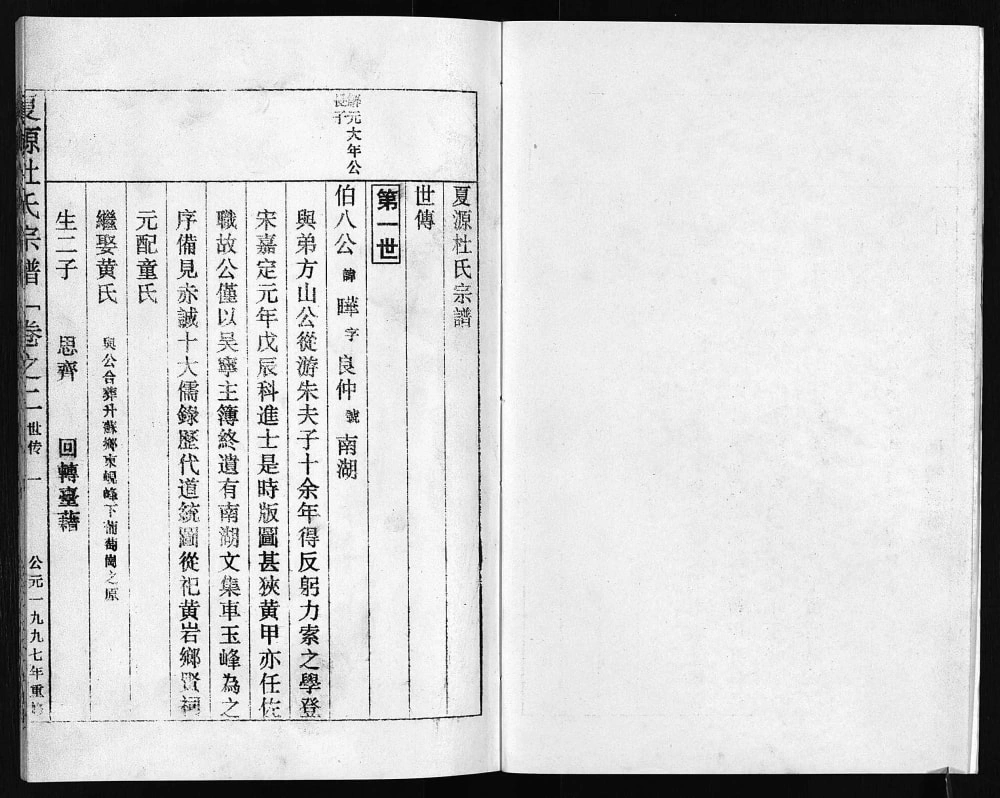 夏源杜氏宗譜
世傳
第一世
解元大年公
長子
伯八公 諱 曄 字 良仲 號 南湖
與弟方山公從游朱夫子十余年得反躬力索之學登
宋嘉定元年戊辰科進士是時版圖甚狹黃甲亦任佐
職故公僅以吴寧主簿終遺有南湖文集車玉峰為之
序備見赤誠十大儒錄歷代道統圖從祀黄岩鄉賢祠
元配童氏
繼娶黄氏 與公合葬升蘇鄉東峴峰下葡萄崗之原
生二子 思齊 回轉臺藉
夏源杜氏宗譜 卷之二 世传 一 公元一九九七年重修